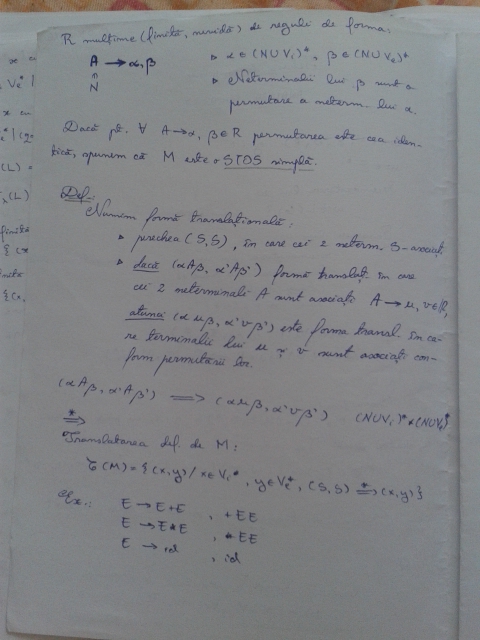 R mulțime (finită, nevidă) de reguli de forma:
A → α, β ▹ α ∈ (N∪Vi)*, β ∈ (N∪Ve)*
∩ ▹ Neterminalii lui β sunt o
N permutare a neterm. lui α.
Dacă pt. ∀ A→α, β∈R permutarea este cea iden-
tică, spunem că M este o STDS simplă.
Def.:
Numim formă translațională:
▹ perechea (S,S), în care cei 2 neterm. S-asociați
▹ dacă (αAβ, α'Aβ') formă translaț. în care
cei 2 neterminali A sunt asociați A → u, v∈R,
atunci (αuβ, α'vβ') este forma transl. în ca-
re terminalii lui u și v sunt asociați con-
form permutării lor.
(αAβ, α'Aβ') ⟹ (αuβ, α'vβ') (N∪Vi)*×(N∪Ve)*
*⟹
Translatarea def. de M:
τ(M) = {(x,y) / x∈Vi*, y∈Ve*, (S,S) *⟹ (x,y)}
Ex.: E → E+E , +EE
E → E*E , *EE
E → id , id
x cu
Ve*
x cu
(L) =
x(L)
finite
{(x
inite
{(x,